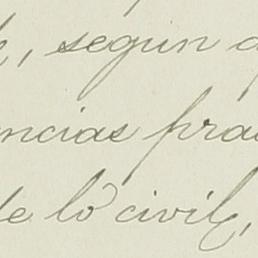 , según
ncias pra
de lo civil,